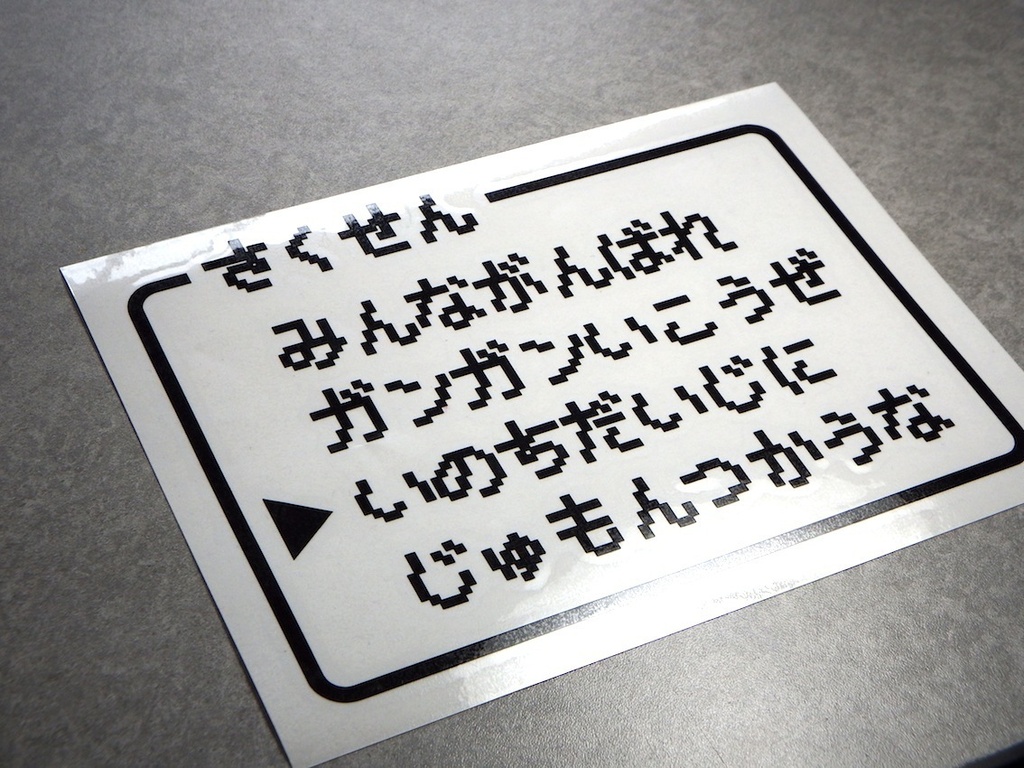 さくせん
みんながんばれ
ガンガンいこうぜ
▶いのちだいじに
じゅもんつかうな